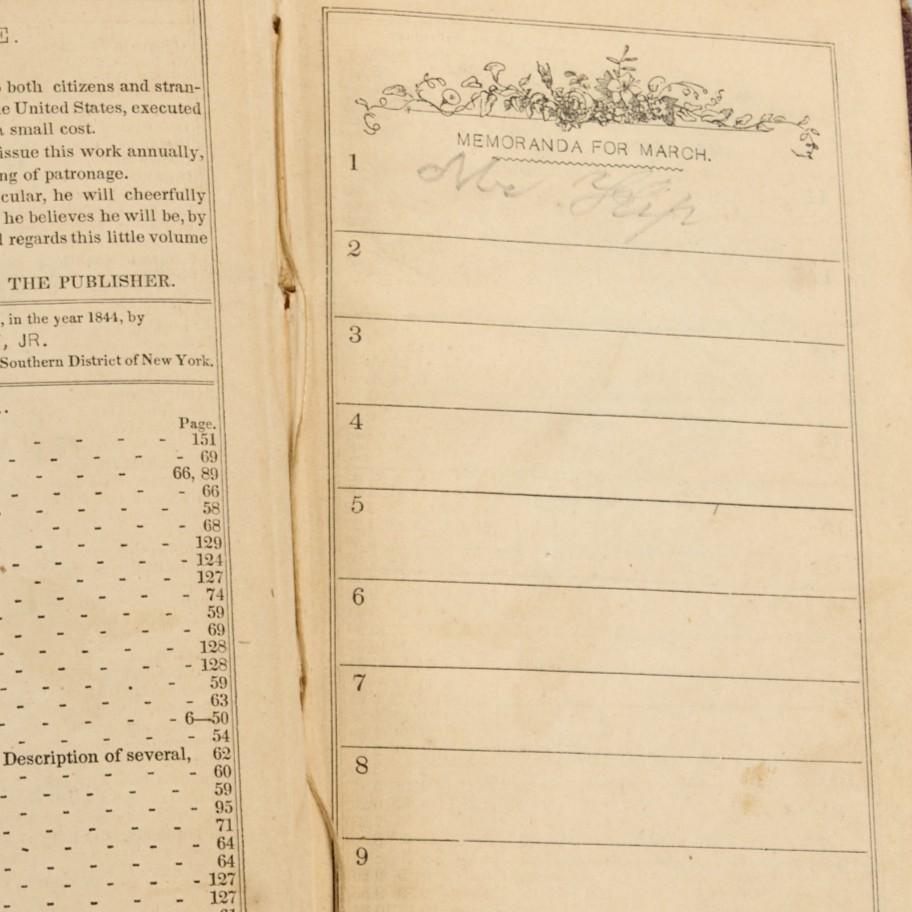 E.
both citizens and stran-
e United States, executed
small cost.
issue this work annually,
ng of patronage.
cular, he will cheerfully
he believes he will be, by
regards this little volume
THE PUBLISHER.
, in the year 1844, by
, JR.
Southern District of New York.
Page.
- - - - 151
- - - - - 69
- - - 66, 89
- - - - - 66
- - - - 58
- - - - - 68
- - - - 129
- - - - - 124
- - - - 127
- - - - - 74
- - - - 59
- - - - - 69
- - - - 128
- - - - - 128
- - - . - 59
- - - - - 63
- - - - - 6—50
- - - - - 54
Description of several, 62
- - - - - 60
- - - - 59
- - - - - 95
- - - - 71
- - - - - 64
- - - - 64
- - - - - 127
- - - - 127
MEMORANDA FOR MARCH.
1
2
3
4
5
6
7
8
9